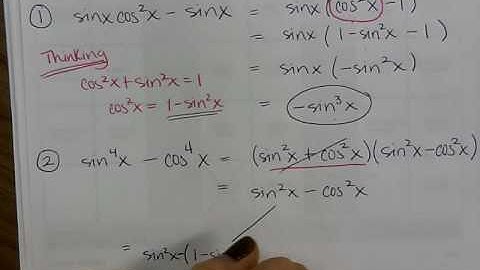 ① sinx cos²x - sinx = sinx (cos²x - 1)
= sinx (1 - sin²x - 1)
Thinking
= sinx (-sin²x)
cos²x + sin²x = 1
cos²x = 1 - sin²x
= -sin³x
② sin⁴x - cos⁴x = (sin²x + cos²x)(sin²x - cos²x)
= sin²x - cos²x
= sin²x - (1 - sin